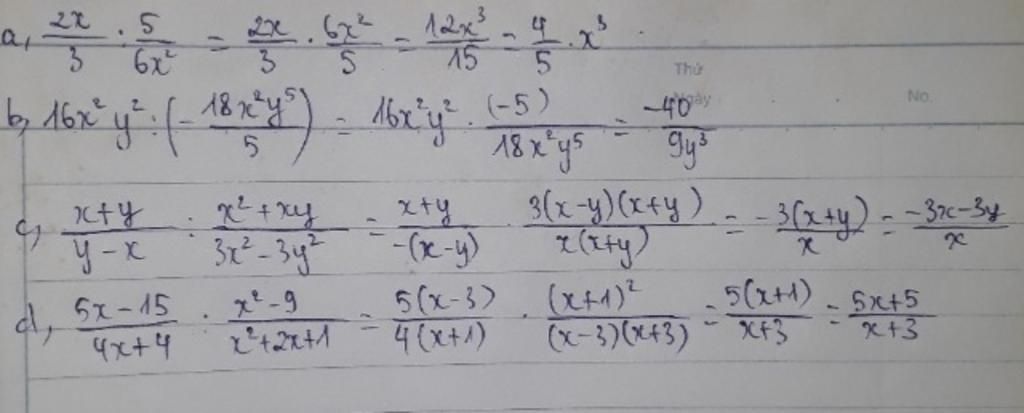 a, \frac{2x}{3} : \frac{5}{6x^2} = \frac{2x}{3} \cdot \frac{6x^2}{5} = \frac{12x^3}{15} = \frac{4}{5} \cdot x^3
Thứ
Ngày No.
b, 16x^2y^2 : \left(-\frac{18x^2y^5}{5}\right) = 16x^2y^2 \cdot \frac{(-5)}{18x^2y^5} = \frac{-40}{9y^3}
c, \frac{x+y}{y-x} : \frac{x^2+xy}{3x^2-3y^2} = \frac{x+y}{-(x-y)} \cdot \frac{3(x-y)(x+y)}{x(x+y)} = -\frac{3(x+y)}{x} = \frac{-3x-3y}{x}
d, \frac{5x-15}{4x+4} : \frac{x^2-9}{x^2+2x+1} = \frac{5(x-3)}{4(x+1)} \cdot \frac{(x+1)^2}{(x-3)(x+3)} = \frac{5(x+1)}{x+3} = \frac{5x+5}{x+3}